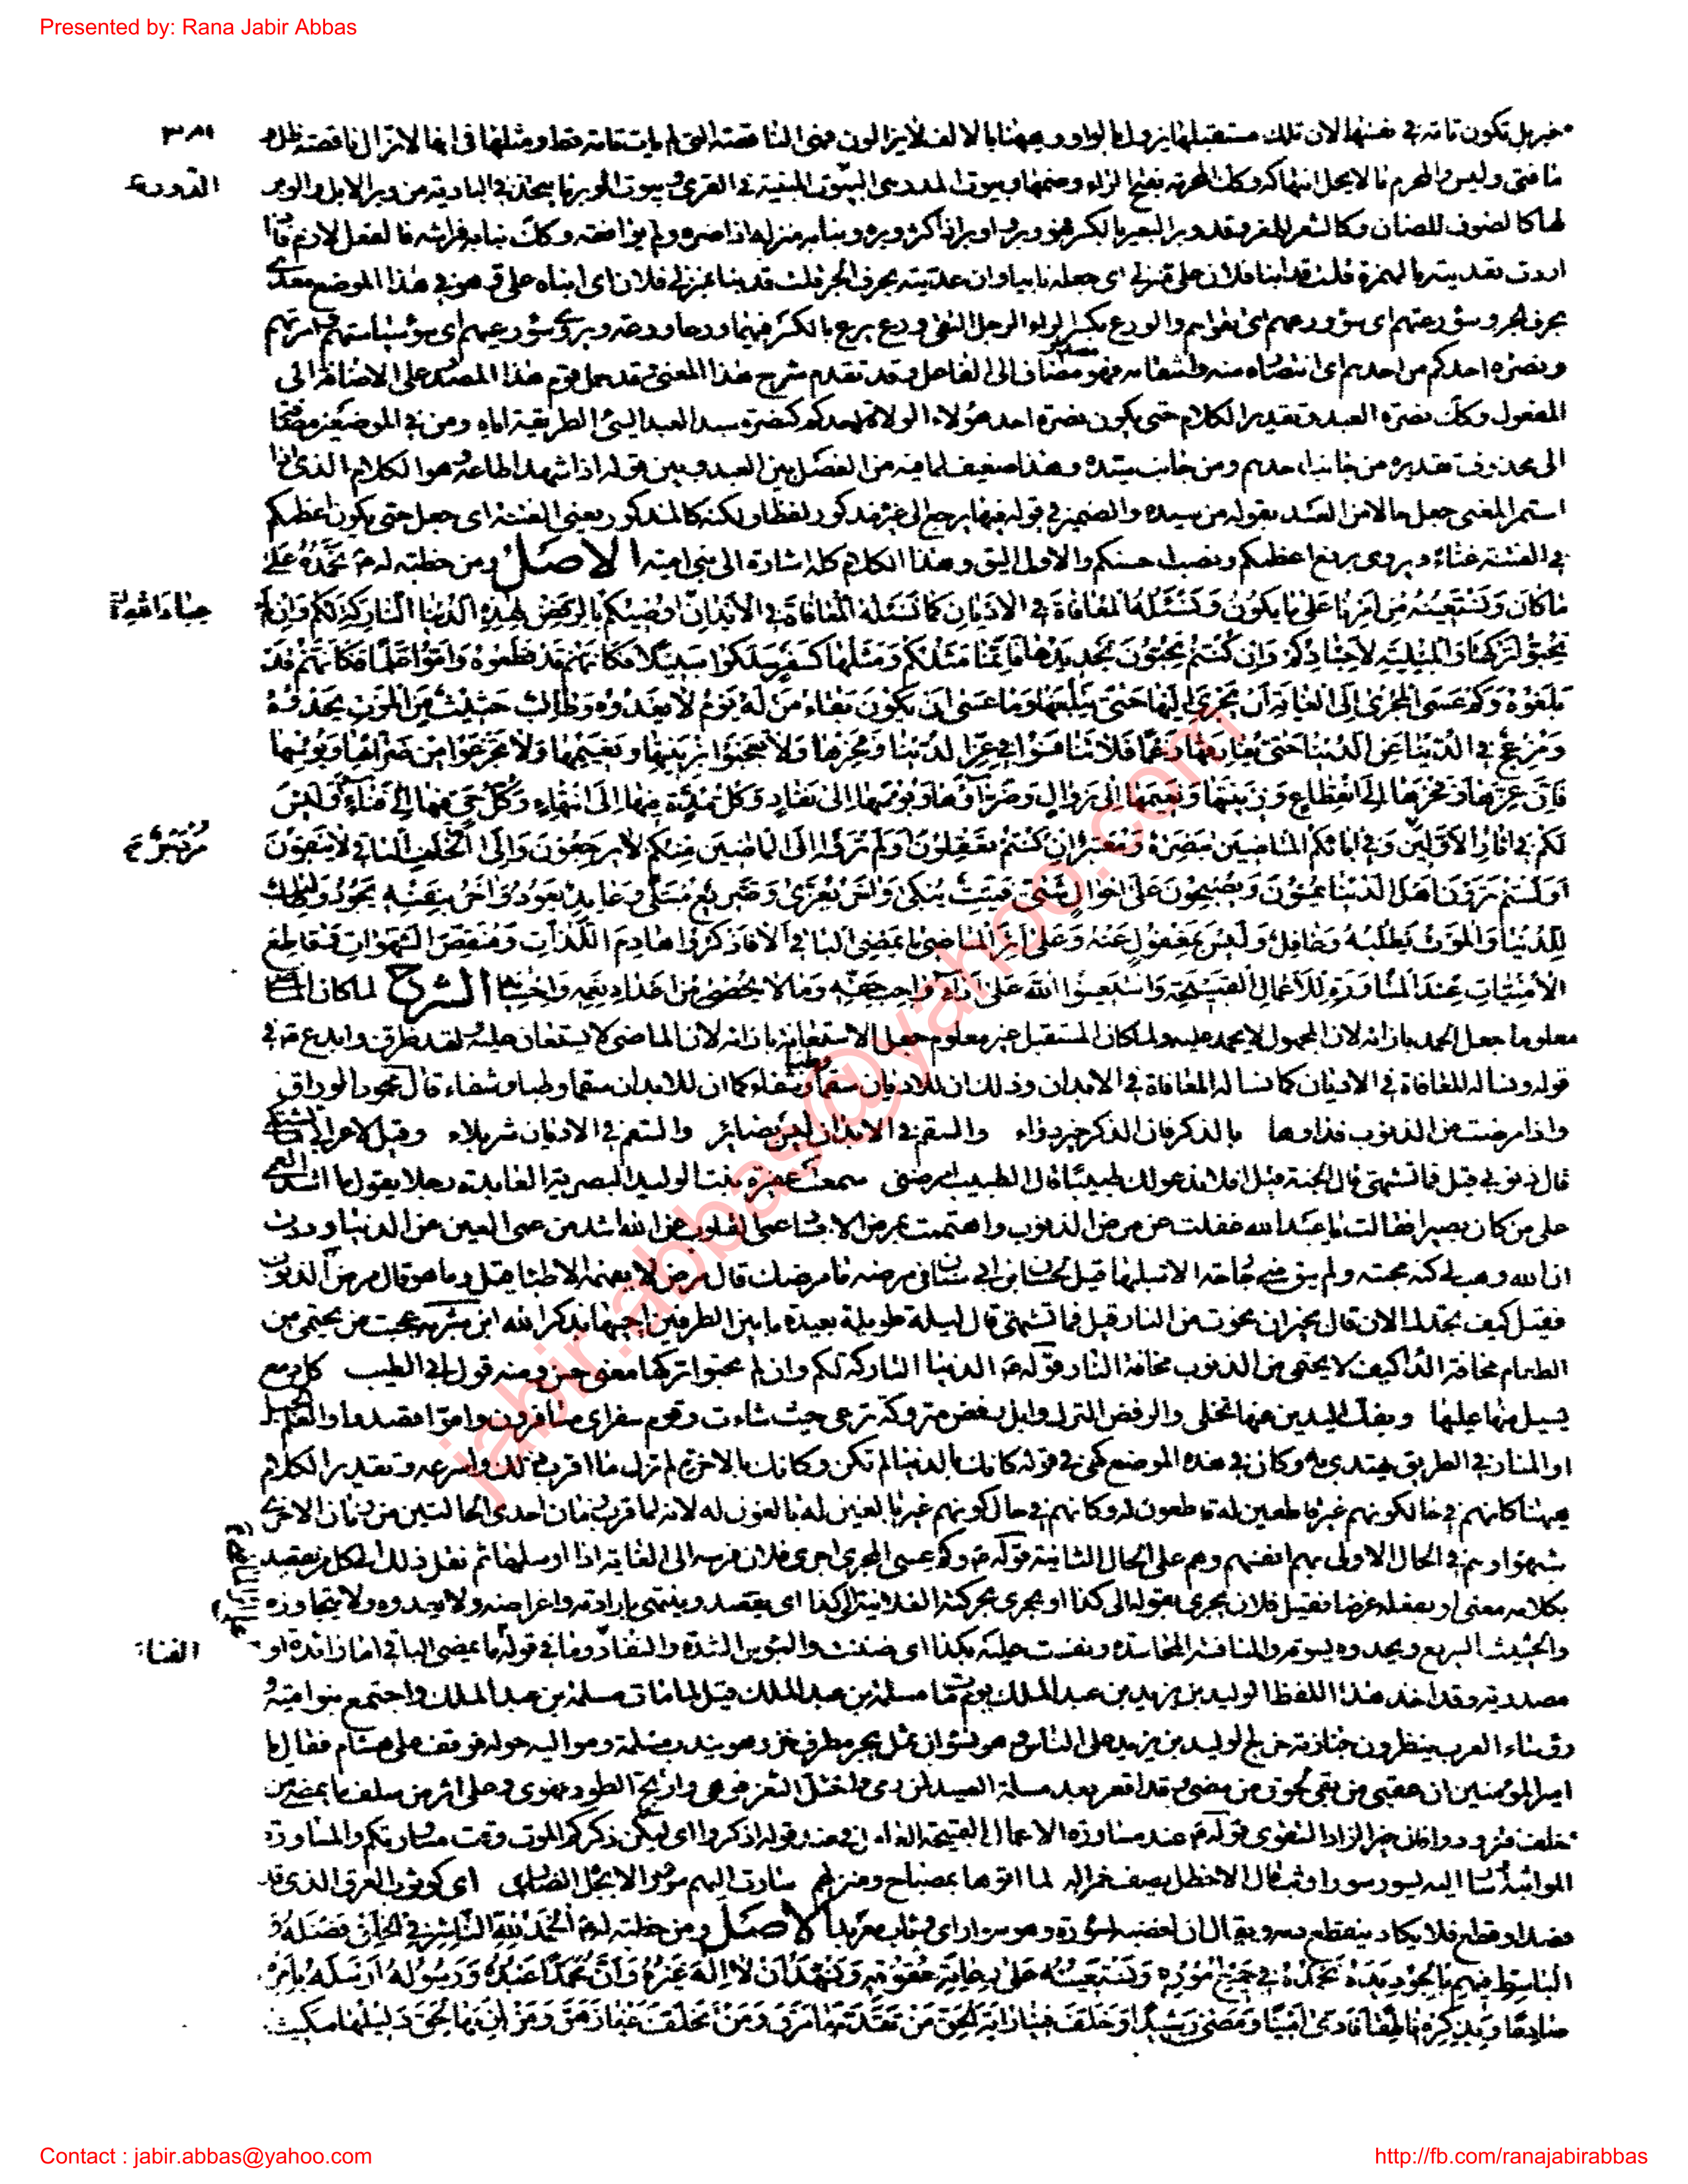 Presented by: Rana Jabir Abbas
٣٨١
خبر بل تكون تامة في نفسها لان تلك مستقبلها يزول بالواو وههنا بالالف لا يزالون فهي الناقصة التي لم يأت تامة قط ومثلها في انها لا تزال ناقصة ظل و
ما فتئ وليس والمحرم ما لا يحل انتهاكه وكذلك المحرمة بفتح الراء وضمها وبيوت المدر هي البيوت المبنية في القرى وبيوت الوبر ما يتخذ في البادية من وبر الابل والوبر
لها كالصوف للضأن وكالشعر للمعز وقد وبر البعير بالكسر فهو وبر واوبر اذا كثر وبره ونبا به منزله اذا ضره ولم يوافقه وكذلك نبا به فراشه فالفعل لازم فاذا
اردت تعديته بالهمزة قلت قد انبا فلان على منزلي اى جعله نابيا وان عديته بحرف الجر قلت قد نبا بمنزلي فلان اى انباه على فهو في هذا الموضع معدى
بحرف الجر وسوء رعتهم اى سوء ورعهم اى تقواهم والورع بكسر الراء الرجل التقى ورع يرع بالكسر فيهما ورعا ورعة ويروى سوء رعيهم اى سوء سياستهم وامرتهم
ونصرة احدكم من احدهم اى انتصاره منه وانتقامه فهو مصدر مضاف الى الفاعل وقد تقدم شرح هذا المعنى وقد حمل قوم هذا المصدر على الاضافة الى
المفعول وكذلك نصرة العبد وتقدير الكلام حتى يكون نصرة احد هؤلاء الولاة لاحدكم كنصرة سيد العبد السيئ الطريقة اياه ومن في الموضعين مضافة
الى محذوف تقديره من جانب احدهم ومن جانب سيده وهذا ضعيف لما فيه من الفصل بين العبد وبين قوله اذا شهد اطاعه وهو الكلام الذي اذا
استمر المعنى جعل حالا من العبد بقوله من سيده والضمير في قوله فيها يرجع الى غير مذكور لفظا ولكنه كالمذكور يعني الفتنة اى جعل حتى يكون اعظمكم
في الفتنة عناء ويروى برفع اعظمكم ونصب احسنكم والاول اليق وهذا الكلام كله اشارة الى بني امية الاصل ومن خطبة له م نَحْمَدُهُ عَلَى
مَا كَانَ وَنَسْتَعِينُهُ مِنْ اَمْرِنَا عَلَى مَا يَكُونُ وَنَسْئَلُهُ الْمُعَافَاةَ فِي الْاَدْيَانِ كَمَا نَسْئَلُهُ الْمُعَافَاةَ فِي الْاَبْدَانِ اُوصِيكُمْ بِالرَّفْضِ لِهَذِهِ الدُّنْيَا التَّارِكَةِ لَكُمْ وَاِنْ لَمْ
تُحِبُّوا تَرْكَهَا وَالْمُبْلِيَةِ لِاَجْسَادِكُمْ وَاِنْ كُنْتُمْ تُحِبُّونَ تَجْدِيدَهَا فَاِنَّمَا مَثَلُكُمْ وَمَثَلُهَا كَسَفْرٍ سَلَكُوا سَبِيلًا فَكَاَنَّهُمْ قَدْ قَطَعُوهُ وَاَمُّوا عَلَمًا فَكَاَنَّهُمْ قَدْ
بَلَغُوهُ وَكَمْ عَسَى الْمُجْرِي اِلَى الْغَايَةِ اَنْ يَجْرِيَ اِلَيْهَا حَتَّى يَبْلُغَهَا وَمَا عَسَى اَنْ يَكُونَ بَقَاءُ مَنْ لَهُ يَوْمٌ لَا يَعْدُوهُ وَطَالِبٌ حَثِيثٌ مِنَ الْمَوْتِ يَحْدُوهُ
وَمُزْعِجٌ فِي الدُّنْيَا عَنِ الدُّنْيَا حَتَّى يُفَارِقَهَا رَغْمًا فَلَا تَنَافَسُوا فِي عِزِّ الدُّنْيَا وَفَخْرِهَا وَلَا تَعْجَبُوا بِزِينَتِهَا وَنَعِيمِهَا وَلَا تَجْزَعُوا مِنْ ضَرَّائِهَا وَبُؤْسِهَا
فَاِنَّ عِزَّهَا وَفَخْرَهَا اِلَى انْقِطَاعٍ وَزِينَتَهَا وَنَعِيمَهَا اِلَى زَوَالٍ وَضَرَّاءَهَا وَبُؤْسَهَا اِلَى نَفَادٍ وَكُلُّ مُدَّةٍ فِيهَا اِلَى انْتِهَاءٍ وَكُلُّ حَيٍّ فِيهَا اِلَى فَنَاءٍ اَوَلَيْسَ
لَكُمْ فِي اٰثَارِ الْاَوَّلِينَ وَفِي اٰبَائِكُمُ الْمَاضِينَ تَبْصِرَةٌ وَمُعْتَبَرٌ اِنْ كُنْتُمْ تَعْقِلُونَ اَوَلَمْ تَرَوْا اِلَى الْمَاضِينَ مِنْكُمْ لَا يَرْجِعُونَ وَاِلَى الْخَلَفِ الْبَاقِي لَا يَبْقُونَ
اَوَلَسْتُمْ تَرَوْنَ اَهْلَ الدُّنْيَا يُمْسُونَ وَيُصْبِحُونَ عَلَى اَحْوَالٍ شَتَّى فَمَيِّتٌ يُبْكَى وَاٰخَرُ يُعَزَّى وَصَرِيعٌ مُبْتَلًى وَعَائِدٌ يَعُودُ وَاٰخَرُ بِنَفْسِهِ يَجُودُ وَطَالِبٌ
لِلدُّنْيَا وَالْمَوْتُ يَطْلُبُهُ وَغَافِلٌ وَلَيْسَ بِمَغْفُولٍ عَنْهُ وَعَلَى اَثَرِ الْمَاضِي مَا يَمْضِي الْبَاقِي اَلَا فَاذْكُرُوا هَادِمَ اللَّذَّاتِ وَمُنَغِّصَ الشَّهَوَاتِ وَقَاطِعَ
الْاُمْنِيَّاتِ عِنْدَ الْمُسَاوَرَةِ لِلْاَعْمَالِ الْقَبِيحَةِ وَاسْتَعِينُوا اللهَ عَلَى اَدَاءِ وَاجِبِ حَقِّهِ وَمَا لَا يُحْصَى مِنْ اَعْدَادِ نِعَمِهِ وَاِحْسَانِهِ الشرح لما كان الماضي
معلوما جعل الحمد بازائه لان المجهول لا يحمد عليه ولما كان المستقبل غير معلوم جعل الاستعانة بازائه لان الماضي لا يستعان عليه لقد ظرف وابدع م في
قوله ونساله المعافاة في الاديان كما نساله المعافاة في الابدان وذلك ان للاديان سقما وطبا وشفاء كما ان للابدان سقما وطبا وشفاء قال محمود الوراق
واذا مرضت من الذنوب فداوها بالذكر فان الذكر خير دواء والسقم في الابدان ليس بضائر والسقم في الاديان شر بلاء وقيل لاعرابي ما تشتكي
قال ذنوبي قيل فما تشتهي قال الجنة قيل افلا ندعو لك طبيبا قال الطبيب امرضني سمعت عفيرة بنت الوليد البصرية العابدة رجلا يقول ما اشد العمى
على من كان بصيرا فقالت يا عبد الله غفلت عن مرض الذنوب واهتممت بمرض الاجساد عمى القلوب عن الله اشد من عمى العين عن الدنيا وددت
ان الله وهب لي كنه محبته ولم يبق مني جارحة الا تبلها قيل لحسان ابن ابي سنان في مرضه ما مرضك قال مرض لا يفهمه الاطباء قيل وما هو قال مرض الذنوب
فقيل كيف تجدك الان قال بخير ان نجوت من النار قيل فما تشتهي قال ليلة طويلة بعيدة ما بين الطرفين احييها بذكر الله ابن شبرمة عجبت ممن يحتمي من
الطعام مخافة الداء كيف لا يحتمي من الذنوب مخافة النار قوله م الدنيا التاركة لكم وان لم تحبوا تركها معنى حسن ومنه قول ابي الطيب كل دمع
يسيل منها عليها وبفك اليدين عنها تخلى والرفض الترك وابل رفض متروكة ترعى حيث شاءت وقوم سفر اى مسافرون واموا قصدوا والعلم الجبل
او المنار في الطريق يهتدى به وكان في هذه المواضع كهي في قوله كانك بالدنيا لم تكن وكانك بالاخرة لم تزل ما اقرب ذلك واسرعه وتقدير الكلام
ههنا كانهم في حال كونهم غير قاطعين له قاطعون له وكانهم في حال كونهم غير بالغين له بالغون له لانه لما قرب زمان احدى الحالتين من زمان الاخرى
شبهوا وهم في الحال الاولى بهم انفسهم وهم على الحال الثانية قوله م وكم عسى المجرى اجرى فلان فرسه الى الغاية اذا ارسلها ثم نقل ذلك الى كل من يقصد
بكلامه معنى او بفعله غرضا فقيل فلان يجري بقوله الى كذا او يجري بحركته الفلانية الى كذا اى يقصد وينتهي بارادته واغراضه ولا يعدوه ولا يتجاوزه
والحثيث السريع ويحدوه يسوقه والمنافسة المحاسدة ونفست عليه بكذا اى ضننت والبؤس الشدة والنفاد وما في قوله ما يمضي الباقي اما زائدة او
الفناء
مصدرية وقد اخذ هذا اللفظ الوليد بن يزيد بن عبد الملك يوم مات مسلمة بن عبد الملك قيل لما مات مسلمة بن عبد الملك واجتمع بنو امية و
رؤساء العرب ينظرون جنازته خرج الوليد بن يزيد على الناس وهو نشوان ثمل يجر مطرف خز وهو يندب مسلمة ومواليه حوله فوقف على هشام فقال يا
امير المؤمنين ان عقبى من بقي لحوق من مضى وقد اقفر بعد مسلمة الصيد لمن رمى واختل الثغر فوهى وارتج الطود فهوى وعلى اثر من سلف ما يمضي من
خلف فتزودوا فان خير الزاد التقوى قوله م عند مساورة الاعمال القبيحة العامل في عند قوله اذكروا اى ليكن ذكركم الموت وقت مساورتكم والمساورة
المواثبة وسار اليه يسور سورا وثب قال الاخطل يصف خمرا له لما اتوها بمصباح ومبزلهم سارت اليهم سؤر الابجل الضاري اى كوثوب العرق الذي قد
فصد او قطع فلا يكاد ينقطع دمه ويقال ان لغضبه لسورة وهو سوار اى وثاب معربد الاصل ومن خطبة له م اَلْحَمْدُ لِلّٰهِ النَّاشِرِ فِي الْخَلْقِ فَضْلَهُ وَ
الْبَاسِطِ فِيهِمْ بِالْجُودِ يَدَهُ نَحْمَدُهُ فِي جَمِيعِ اُمُورِهِ وَنَسْتَعِينُهُ عَلَى رِعَايَةِ حُقُوقِهِ وَنَشْهَدُ اَنْ لَا اِلٰهَ غَيْرُهُ وَاَنَّ مُحَمَّدًا عَبْدُهُ وَرَسُولُهُ اَرْسَلَهُ بِاَمْرِهِ
صَادِعًا وَبِذِكْرِهِ نَاطِقًا فَاَدَّى اَمِينًا وَمَضَى رَشِيدًا وَخَلَّفَ فِينَا رَايَةَ الْحَقِّ مَنْ تَقَدَّمَهَا مَرَقَ وَمَنْ تَخَلَّفَ عَنْهَا زَهَقَ وَمَنْ لَزِمَهَا لَحِقَ دَلِيلُهَا مَكِيثُ
jabir.abbas@yahoo.com
Contact : jabir.abbas@yahoo.com
http://fb.com/ranajabirabbas